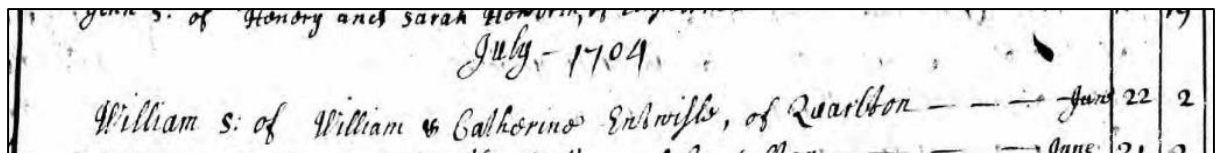 John S: of Henery and Sarah Howorth, of
July - 1704
William S: of William & Catherine Entwisle, of Quarlton — — — June 22 2
June 21 2